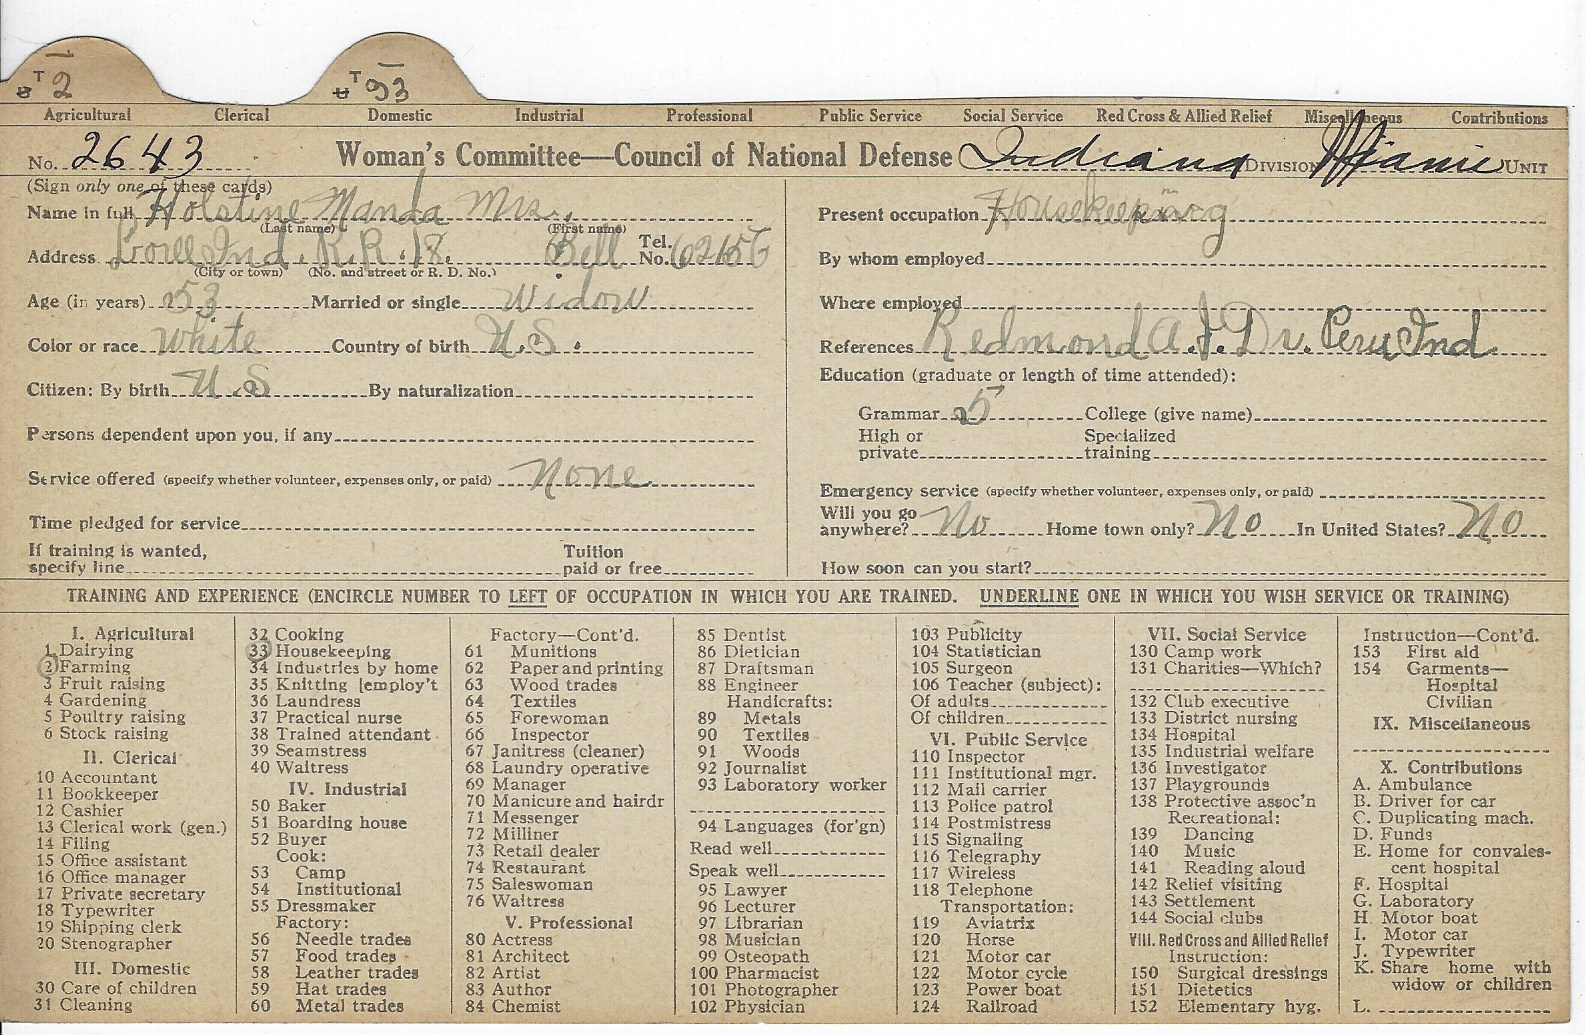 T 2
T 33
Agricultural Clerical Domestic Industrial Professional Public Service Social Service Red Cross & Allied Relief Miscellaneous Contributions
No. 2643 Woman's Committee—Council of National Defense Indiana DIVISION Miami UNIT
(Sign only one of these cards)
Name in full Holstine Manda Mrs.
(Last name) (First name)
Address Loree Ind. R.R. 18. Bell Tel. No.
(City or town) (No. and street or R. D. No.)
Age (in years) 53 Married or single Widow
Color or race White Country of birth U.S.
Citizen: By birth U.S By naturalization
Persons dependent upon you, if any
Service offered (specify whether volunteer, expenses only, or paid) None
Time pledged for service
If training is wanted, specify line Tuition paid or free
Present occupation Housekeeping
By whom employed
Where employed
References Redmond A.J. Dr. Peru Ind
Education (graduate or length of time attended):
Grammar 5 College (give name)
High or private Specialized training
Emergency service (specify whether volunteer, expenses only, or paid)
Will you go anywhere? No Home town only? No In United States? No
How soon can you start?
TRAINING AND EXPERIENCE (ENCIRCLE NUMBER TO LEFT OF OCCUPATION IN WHICH YOU ARE TRAINED. UNDERLINE ONE IN WHICH YOU WISH SERVICE OR TRAINING)
I. Agricultural
1 Dairying
2 Farming
3 Fruit raising
4 Gardening
5 Poultry raising
6 Stock raising
II. Clerical
10 Accountant
11 Bookkeeper
12 Cashier
13 Clerical work (gen.)
14 Filing
15 Office assistant
16 Office manager
17 Private secretary
18 Typewriter
19 Shipping clerk
20 Stenographer
III. Domestic
30 Care of children
31 Cleaning
32 Cooking
33 Housekeeping
34 Industries by home
35 Knitting [employ't
36 Laundress
37 Practical nurse
38 Trained attendant
39 Seamstress
40 Waitress
IV. Industrial
50 Baker
51 Boarding house
52 Buyer
Cook:
53 Camp
54 Institutional
55 Dressmaker
Factory:
56 Needle trades
57 Food trades
58 Leather trades
59 Hat trades
60 Metal trades
Factory—Cont'd.
61 Munitions
62 Paper and printing
63 Wood trades
64 Textiles
65 Forewoman
66 Inspector
67 Janitress (cleaner)
68 Laundry operative
69 Manager
70 Manicure and hairdr
71 Messenger
72 Milliner
73 Retail dealer
74 Restaurant
75 Saleswoman
76 Waitress
V. Professional
80 Actress
81 Architect
82 Artist
83 Author
84 Chemist
85 Dentist
86 Dietician
87 Draftsman
88 Engineer
Handicrafts:
89 Metals
90 Textiles
91 Woods
92 Journalist
93 Laboratory worker
94 Languages (for'gn)
Read well
Speak well
95 Lawyer
96 Lecturer
97 Librarian
98 Musician
99 Osteopath
100 Pharmacist
101 Photographer
102 Physician
103 Publicity
104 Statistician
105 Surgeon
106 Teacher (subject):
Of adults
Of children
VI. Public Service
110 Inspector
111 Institutional mgr.
112 Mail carrier
113 Police patrol
114 Postmistress
115 Signaling
116 Telegraphy
117 Wireless
118 Telephone
Transportation:
119 Aviatrix
120 Horse
121 Motor car
122 Motor cycle
123 Power boat
124 Railroad
VII. Social Service
130 Camp work
131 Charities—Which?
132 Club executive
133 District nursing
134 Hospital
135 Industrial welfare
136 Investigator
137 Playgrounds
138 Protective assoc'n
Recreational:
139 Dancing
140 Music
141 Reading aloud
142 Relief visiting
143 Settlement
144 Social clubs
VIII. Red Cross and Allied Relief
Instruction:
150 Surgical dressings
151 Dietetics
152 Elementary hyg.
Instruction—Cont'd.
153 First aid
154 Garments—
Hospital
Civilian
IX. Miscellaneous
X. Contributions
A. Ambulance
B. Driver for car
C. Duplicating mach.
D. Funds
E. Home for convales-
cent hospital
F. Hospital
G. Laboratory
H. Motor boat
I. Motor car
J. Typewriter
K. Share home with
widow or children
L.